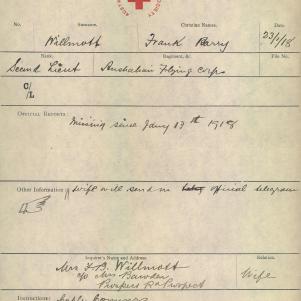 No. Surname. Christian Names. Date.
Willmott Frank Barry 23/1/18
Rank. Regiment, &c. File No.
Second Lieut Australian Flying Corps
C/L
OFFICIAL REPORTS:
Missing since Jany 13th 1918
Other Information: Wife will send on official telegram
Inquirer's Name and Address Relation.
Mrs F. B. Willmott
c/o Mrs Bawden Wife
Prospect Rd Prospect
Instructions: Cable Comrs